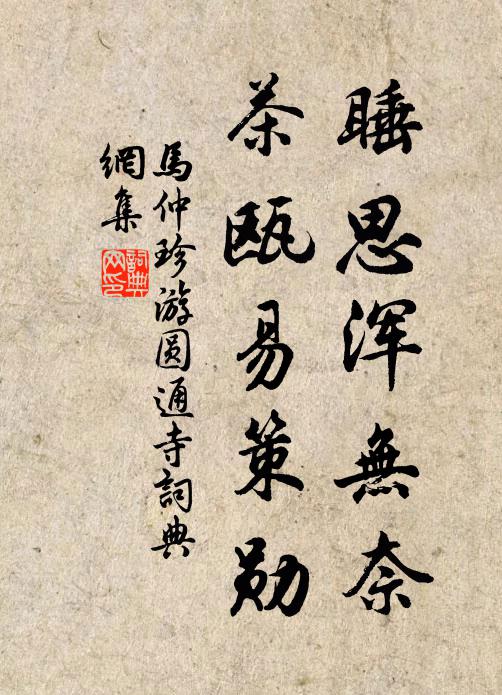 睡思浑無奈
茶瓯易策勋
馬仲珍游圆通寺詞典
網集
詞典
网印